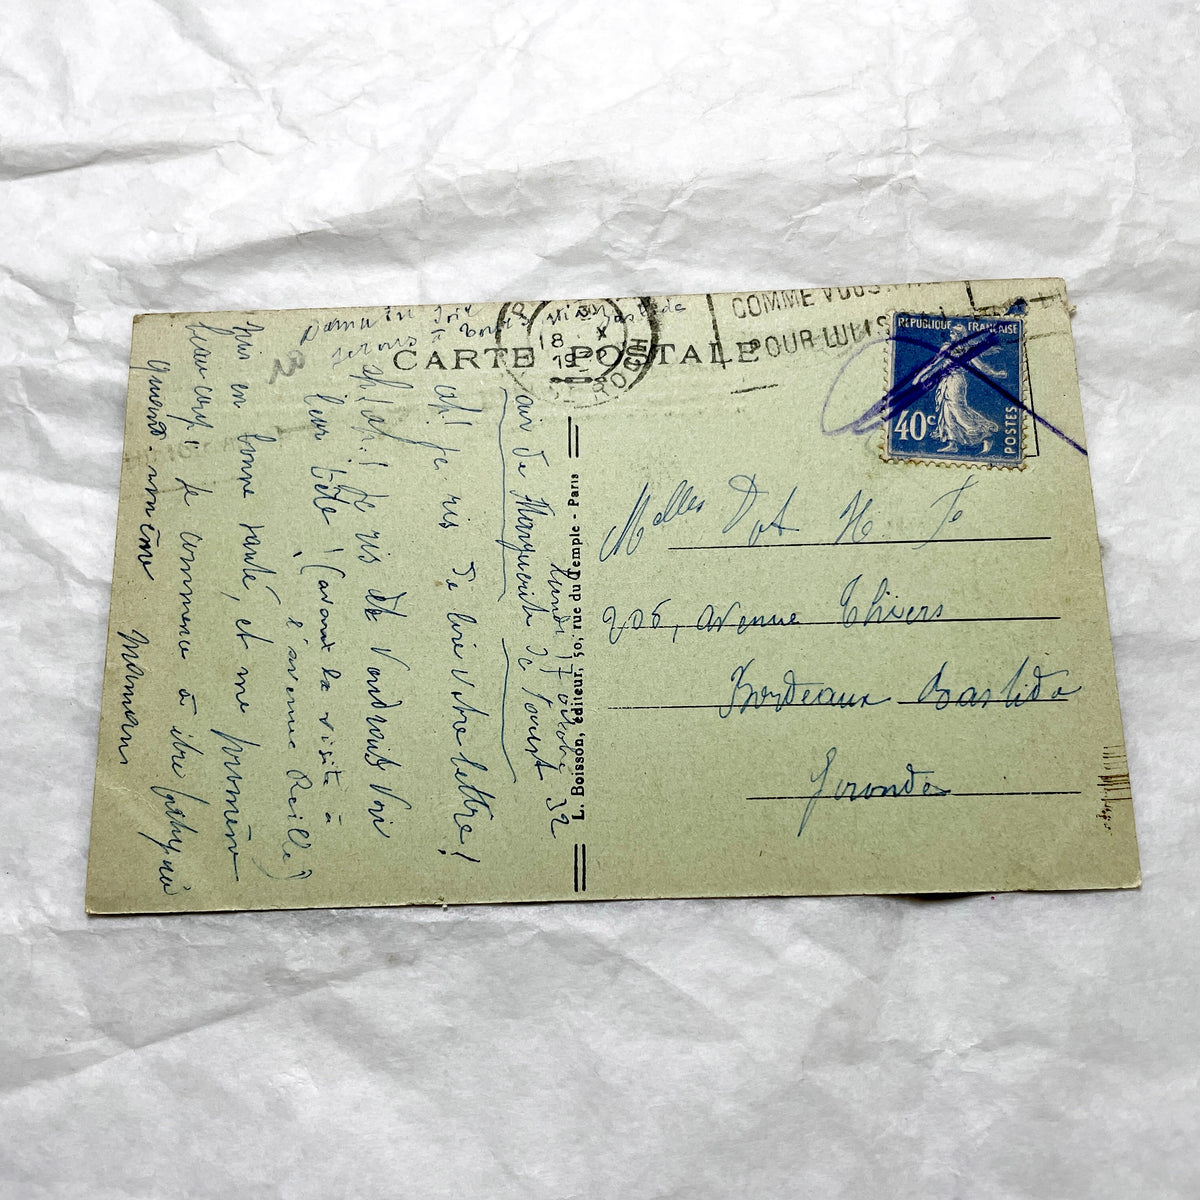 lundi 17 octobre 32
air de Marguerite de Faust
ah! Je ris de lire votre lettre!
ah! ah! Je ris de voir
leur tête! (avant la visite à
l'avenue Reille)
suis en bonne santé, et me promène
beaucoup. Je commence à être fatiguée
quand-même
Maman
Demain soir
serons à
CARTE POSTALE
18 X
ROCH
COMME VOUS
POUR LUI
REPUBLIQUE FRANÇAISE
40c
POSTES
L. Boisson, éditeur, 50, rue du Temple - Paris
Melles Dot H Je
206, avenue Thiers
Bordeaux Bastide
Gironde